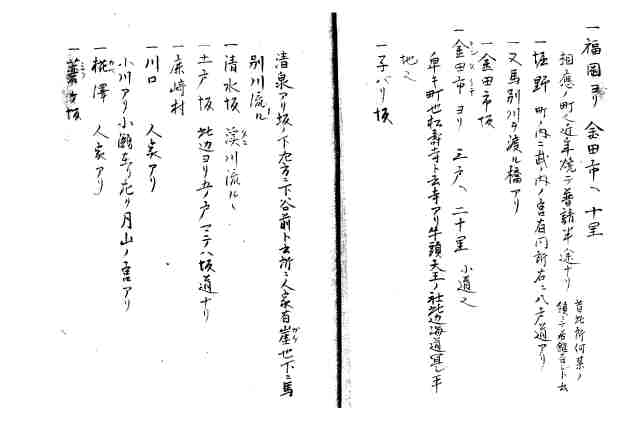 一福岡ヨリ 金田市ヘ 十里
相應ノ町也近年焼テ普請半途ナリ
昔此所何某ノ
領ニテ居館有シト云
一堀野 町ノ内ニ武ノ内ノ宮有同所右ニ八戸道アリ
一又馬別川ヲ渡ル橋アリ
一金田市坂
一金田市ヨリ 三戸ヘ 二十里 小道也
卑キ町也松壽寺ト云寺アリ牛頭天王ノ社此辺海道冝シ平
地也
一子バリ坂
清泉アリ坂ノ下左方ニ下谷前ト云所ニ人家有崖ガケ地下ニ馬
別川流ル
一清水坂 渓川流ルヽ
一土戸坂 此辺ヨリ五ノ戸マテハ坂道ナリ
一庶崎村
一川口 人家アリ
小川アリ小瀬左リ右リ月山ノ宮アリ
一椛澤 人家アリ
一蓑ヶ坂